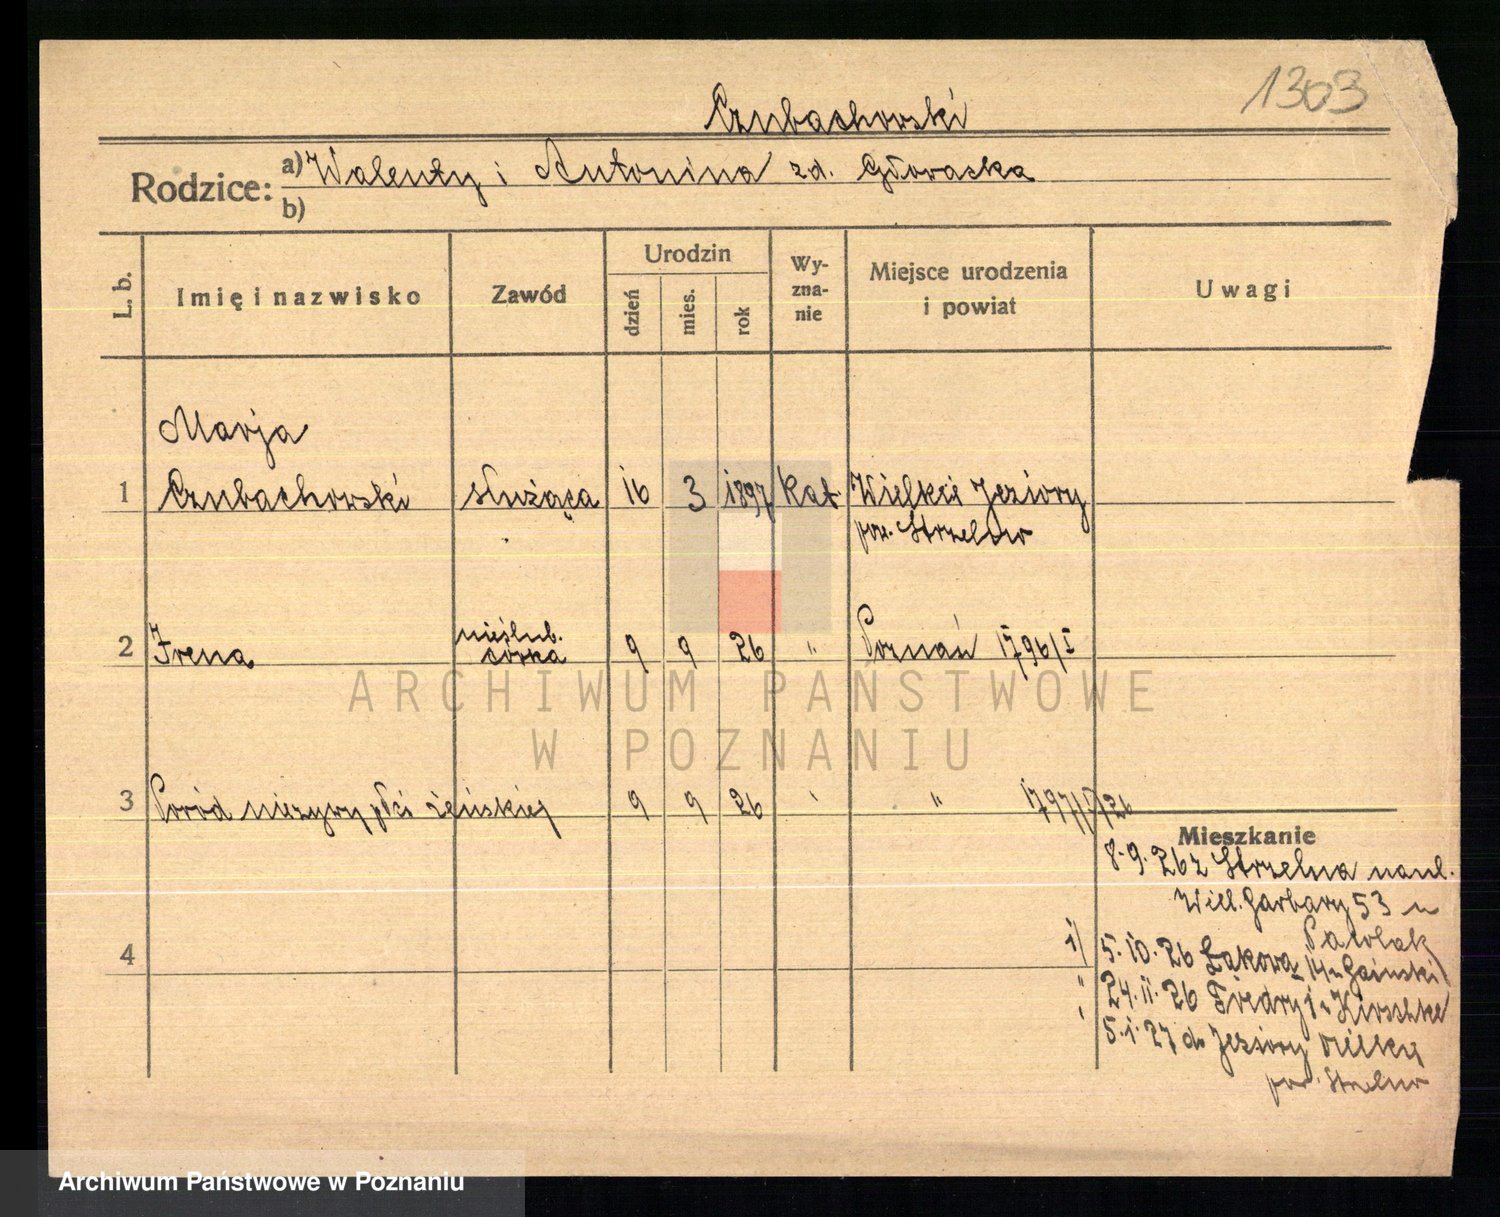 1303
Czubachowski
Rodzice: a) Walenty i Antonina zd. Głowacka
b)
L. b. Imię i nazwisko Zawód Urodzin dzień mies. rok Wyznanie Miejsce urodzenia i powiat Uwagi
Marja
1 Czubachowski służąca 16 3 1897 kat Wielkie Jeziory
pow. Strzelno
nieślub.
2 Irena córka 9 9 26 " Poznań 1796/I
3 Poród nieżywy płci żeńskiej 9 9 26 " 1797/I/26
Mieszkanie
8.9.26 z Strzelna na ul.
Wiel. Garbary 53 u
Pawlak
4
1/ 5.10.26 Łąkowa 14 u Gaiński
" 24.11.26 Fredry 1 u Kirschke
5.1.27 do Jeziory Wielkie
pow. Strzelno
ARCHIWUM PAŃSTWOWE
W POZNANIU
Archiwum Państwowe w Poznaniu